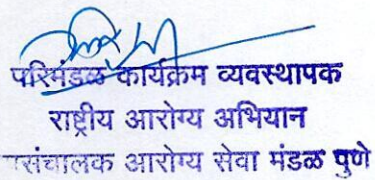 परिमंडळ कार्यक्रम व्यवस्थापक
राष्ट्रीय आरोग्य अभियान
पसंचालक आरोग्य सेवा मंडळ पुणे